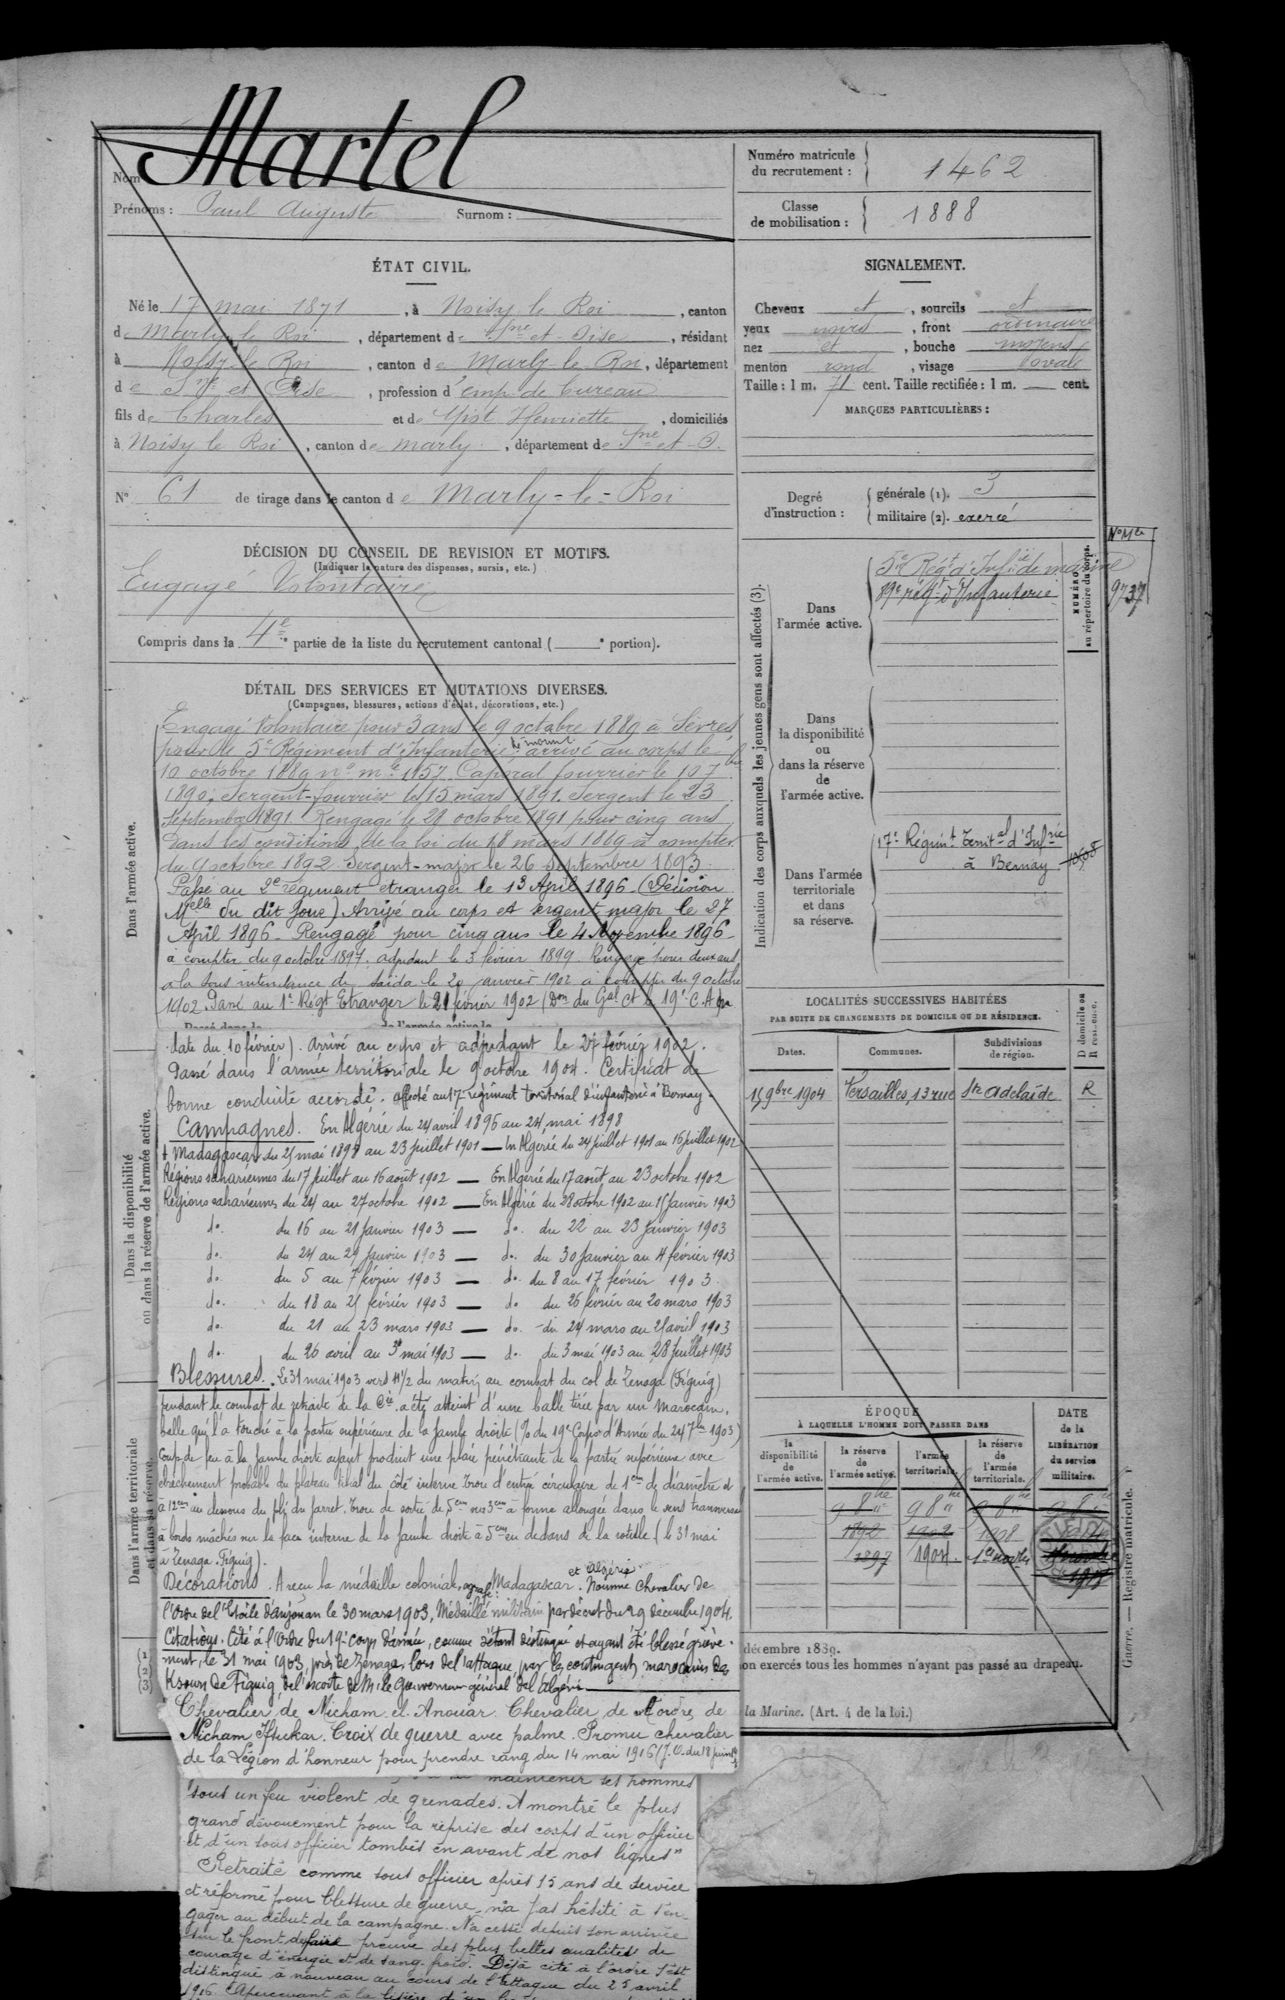 Martel
Nom
Prénoms : Paul Auguste Surnom :
Numéro matricule
du recrutement : 1462
Classe
de mobilisation : 1888
ÉTAT CIVIL.
Né le 17 mai 1871, à Noisy le Roi, canton
de Marly le Roi, département de Sne et Oise, résidant
à Noisy le Roi, canton de Marly le Roi, département
de Sne et Oise, profession d'emp. de bureau
fils de Charles et de Henriette, domiciliés
à Noisy le Roi, canton de Marly, département de Sne et O.
N° 61 de tirage dans le canton de Marly-le-Roi
SIGNALEMENT.
Cheveux et, sourcils et
yeux noirs, front ordinaire
nez et, bouche moyens
menton rond, visage ovale
Taille : 1 m. 71 cent. Taille rectifiée : 1 m. cent.
MARQUES PARTICULIÈRES :
Degré
d'instruction :
générale (1). 3
militaire (2). exercé
DÉCISION DU CONSEIL DE REVISION ET MOTIFS.
(Indiquer la nature des dispenses, sursis, etc.)
Engagé Volontaire
Compris dans la 4e partie de la liste du recrutement cantonal ( portion).
DÉTAIL DES SERVICES ET MUTATIONS DIVERSES.
(Campagnes, blessures, actions d'éclat, décorations, etc.)
Dans l'armée active.
Engagé Volontaire pour 3 ans le 9 octobre 1889 à Sèvres
pour le 5e Régiment d'Infanterie de marine arrivé au corps le
10 octobre 1889 n° mle 1157. Caporal fourrier le 10 7bre
1890, Sergent-fourrier le 15 mars 1891. Sergent le 23
Septembre 1891. Rengagé le 28 octobre 1891 pour cinq ans
dans les conditions de la loi du 18 mars 1889 à compter
du 9 octobre 1892. Sergent-major le 26 Septembre 1893.
Passé au 2e régiment étranger le 13 April 1896 (Décision
Melle du dit jour) Arrivé au corps et sergent major le 27
April 1896 - Rengagé pour cinq ans le 4 Novembre 1896
à compter du 9 octobre 1897. adjudant le 3 février 1899. Rengagé pour deux ans
à la sous intendance de Saïda le 20 janvier 1902 à compter du 9 octobre
1902. Passé au 1e Régt Etranger le 21 février 1902 (Don du Gal Ct le 19e C.A en
date du 10 février). Arrivé au corps et adjudant le 27 février 1902.
Passé dans l'armée territoriale le 9 octobre 1904. Certificat de
bonne conduite accordé. Affecté au 17e régiment territorial d'infanterie à Bernay.
Campagnes. En Algérie du 24 avril 1896 au 24 mai 1898
Madagascar du 25 mai 1898 au 23 juillet 1901 — En Algérie du 24 juillet 1901 au 16 juillet 1902
Régions sahariennes du 17 juillet au 16 août 1902 — En Algérie du 17 août au 23 octobre 1902
Régions sahariennes du 24 au 27 octobre 1902 — En Algérie du 28 octobre 1902 au 15 janvier 1903
do. du 16 au 21 janvier 1903 — do. du 22 au 23 janvier 1903
do. du 24 au 29 janvier 1903 — do. du 30 janvier au 4 février 1903
do. du 5 au 7 février 1903 — do. du 8 au 17 février 1903.
do. du 18 au 25 février 1903 — do du 26 février au 20 mars 1903
do. du 21 au 23 mars 1903 — do. du 24 mars au 25 avril 1903
do. du 26 avril au mai 1903 — do. du 3 mai 1903 au 28 juillet 1903
Blessures. Le 31 mai 1903 vers 11h1/2 du matin, au combat du col de Zenaga (Figuig)
pendant le combat de retraite de la Cie a été atteint d'une balle tirée par un marocain,
balle qui l'a touché à la partie supérieure de la jambe droite (O/ du 19e Corps d'Armée du 24 7bre 1903)
Coup de feu à la jambe droite ayant produit une plaie pénétrante de la partie supérieure avec
détachement probable du plateau tibial du côté interne trou d'entrée circulaire de 1cm de diamètre et
à 12cm au dessous du pli du jarret. Trou de sortie de 5cm sur 3cm à forme allongée dans le sens transversal
à bords mâchés sur la face interne de la jambe droite à 5cm en dedans de la rotule (le 31 mai
à Zenaga Figuig).
Décorations. A reçu la médaille coloniale, agrafe : Madagascar et Algérie. Nommé Chevalier de
l'Ordre de l'Etoile d'Anjouan le 30 mars 1903, Médaillé militaire par décret du 29 décembre 1904.
Citations. Cité à l'ordre du 19e corps d'armée, comme s'étant distingué et ayant été blessé griève-
ment, le 31 mai 1903, près de Zenaga, lors de l'attaque, par les contingents marocains des
Ksours de Figuig, de l'escorte de M. le Gouverneur général de l'Algérie
Chevalier de Nicham el Anouar. Chevalier de l'ordre de
Nicham Iftikar. Croix de guerre avec palme. Promu chevalier
de la Légion d'honneur pour prendre rang du 14 mai 1916 (J.O. du 18 juin
maintenir ses hommes
sous un feu violent de grenades. A montré le plus
grand dévouement pour la reprise des corps d'un officier
et d'un sous officier tombés en avant de nos lignes"
Retraité comme sous officier après 15 ans de service
et réformé pour blessure de guerre, n'a pas hésité à s'en-
gager au début de la campagne. N'a cessé depuis son arrivée
sur le front de faire preuve des plus belles qualités de
courage d'énergie et de sang-froid. Déjà cité à l'ordre s'est
distingué à nouveau au cours de l'attaque du 25 avril
1916. Apercevant à la lisière d'un
Dans la disponibilité
ou dans la réserve de l'armée active.
Dans l'armée territoriale
et dans sa réserve.
(1)
(2)
(3)
Indication des corps auxquels les jeunes gens sont affectés (3).
NUMÉRO
au répertoire du corps.
Dans
l'armée active.
5e Régt d'Infie de marine
89e régt d'Infanterie
No Mle
9737
Dans
la disponibilité
ou
dans la réserve
de
l'armée active.
Dans l'armée
territoriale
et dans
sa réserve.
17e Régimt Territal d'Infrie
à Bernay
LOCALITÉS SUCCESSIVES HABITÉES
PAR SUITE DE CHANGEMENTS DE DOMICILE OU DE RÉSIDENCE.
Dates. Communes. Subdivisions de région. D domicile ou R résidence.
15 9bre 1904 Versailles, 13 rue Ste Adelaïde R
ÉPOQUE
À LAQUELLE L'HOMME DOIT PASSER DANS
la disponibilité de l'armée active.
la réserve de l'armée active.
l'armée territoriale.
la réserve de l'armée territoriale.
DATE de la LIBÉRATION du service militaire.
9 8bre 9 8bre 9 8bre 9 8bre
1892 1902 1908
1897 1904.
décembre 1889.
on exercés tous les hommes n'ayant pas passé au drapeau.
la Marine. (Art. 4 de la loi.)
Guerre. — Registre matricule. 1